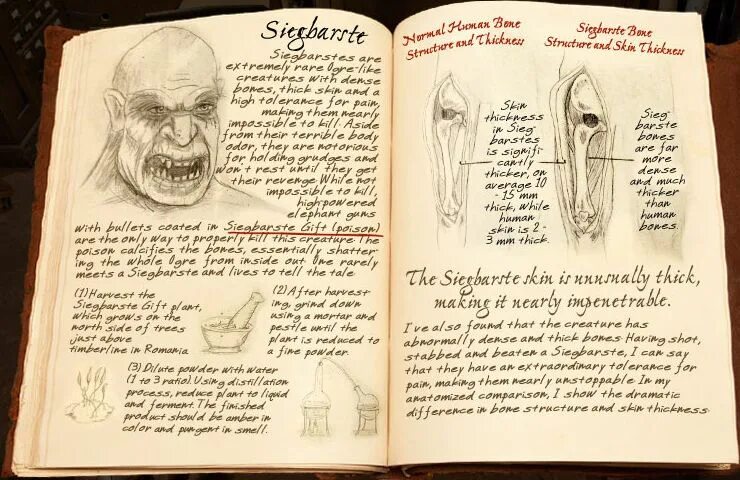 Siegbarste
Siegbarstes are
extremely rare Ogre-like
creatures with dense
bones, thick skin and a
high tolerance for pain,
making them nearly
impossible to kill. Aside
from their terrible body
odor, they are notorious
for holding grudges and
won't rest until they get
their revenge While not
impossible to kill,
high-powered
elephant guns
with bullets coated in Siegbarste Gift (poison)
are the only way to properly kill this creature The
poison calcifies the bones, essentially shatter-
ing the whole Ogre from inside out One rarely
meets a Siegbarste and lives to tell the tale
(1) Harvest the
Siegbarste Gift plant,
which grows on the
north side of trees
just above
timberline in Romania
(2) After harvest
ing, grind down
using a mortar and
pestle until the
plant is reduced to
a fine powder.
(3) Dilute powder with water
(1 to 3 ratio). Using distillation
process, reduce plant to liquid
and ferment. The finished
product should be amber in
color and pungent in smell.
Normal Human Bone
Structure and Thickness
Siegbarste Bone
Structure and Skin Thickness
Skin
thickness
in Sieg-
barstes
is signifi-
cantly
thicker, on
average 10
- 15 mm
thick, while
human
skin is 2 -
3 mm thick.
Sieg-
barste
bones
are far
more
dense
and much
thicker
than
human
bones.
The Siegbarste skin is unusually thick,
making it nearly impenetrable.
I've also found that the creature has
abnormally dense and thick bones Having shot,
stabbed and beaten a Siegbarste, I can say
that they have an extraordinary tolerance for
pain, making them nearly unstoppable In my
anatomized comparison, I show the dramatic
difference in bone structure and skin thickness